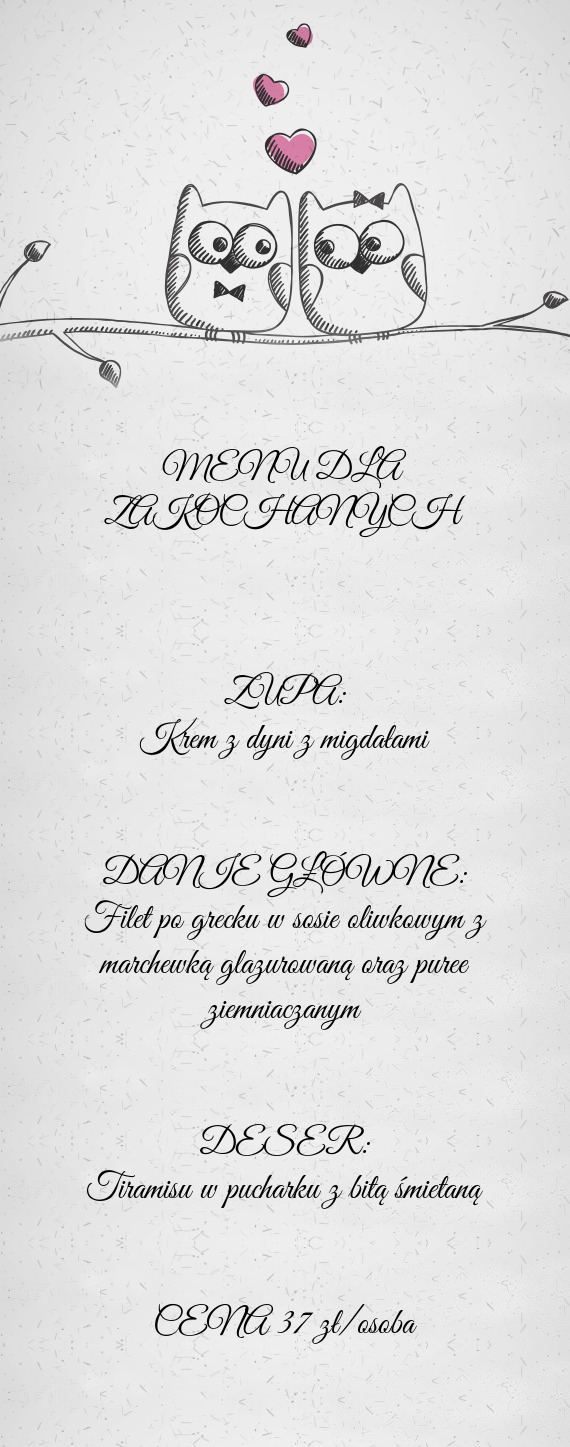 MENU DLA
ZAKOCHANYCH
ZUPA:
Krem z dyni z migdałami
DANIE GŁÓWNE:
Filet po grecku w sosie oliwkowym z
marchewką glazurowaną oraz puree
ziemniaczanym
DESER:
Tiramisu w pucharku z bitą śmietaną
CENA 37 zł/osoba